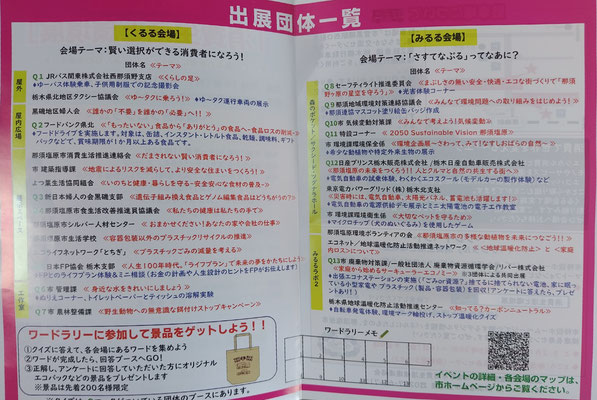 出展団体一覧
【くるる会場】
会場テーマ：賢い選択ができる消費者になろう！
団体名 ≪テーマ≫
屋外
Q1 JRバス関東株式会社西那須野支店 ≪くらしの足≫
♦ゆーバス体験乗車、子供用制服での記念撮影会
栃木県北地区タクシー協議会 ≪ゆータクに乗ろう！≫ ♦ゆータク運行車両の展示
屋内広場
黒磯地区婦人会 ≪誰かの「不要」を誰かの「必要」へ！！≫
Q2 フードバンク県北 ≪「もったいない」食品から「ありがとう」の食品へ-食品ロスの削減≫
♦フードドライブを実施します。対象は、缶詰、インスタント・レトルト食品、乾麺、調味料、ギフトパックなどで、賞味期限が1か月以上ある食品です。
那須塩原市消費生活推進連絡会 ≪だまされない賢い消費者に！≫
市 建築指導課 ≪地震によるリスクを減らして、より安全な住まいをつくろう！≫
よつ葉生活協同組合 ≪いのちと健康・暮らしを守る-安全安心な食材の普及-≫
Q3 新日本婦人の会黒磯支部 ≪遺伝子組み換え食品とゲノム編集食品はどうちがう？≫
那須塩原市食生活改善推進員協議会 ≪私たちの健康は私たちの手で≫
那須塩原市シルバー人材センター ≪おまかせください！あなたの家や会社の仕事≫
那須塩原市生活学校 ≪容器包装以外のプラスチックリサイクルの推進≫
エコライフネットワーク「とちぎ」 ≪プラスチックごみの減量を考える≫
工作室
日本FP協会 栃木支部 ≪人生100年時代、「ライフプラン」で未来の夢をかたちにしよう≫
Q6 市 管理課 ≪身近な水をきれいにしましょう≫
♦ぬりえコーナー、トイレットペーパーとティッシュの溶解実験
Q7 市 農林整備課 ≪野生動物への無意識な餌付けストップキャンペーン≫
ワードラリーに参加して景品をゲットしよう！！
①クイズに答えて、各会場にあるワードを集めよう
②ワードが完成したら、回答ブースへGO！
③正解し、アンケートに回答していただいた方にオリジナル
エコバックなどの景品をプレゼントします
※景品は先着200名様限定
【みるる会場】
会場テーマ：「さすてなぶる」ってなあに？
団体名 ≪テーマ≫
Q8 セーフティライト推進委員会 ≪まぶしさの無い安全・快適・エコな街づくりで「那須野ヶ原の星空を守ろう」≫ ♦光害体験コーナー
Q9 那須地域環境対策連絡協議会 ≪みんなで環境問題への取り組みをはじめよう！≫
♦那須連協マスコット塗り絵缶バッジ作成
Q10 市 気候変動対策課 ≪みんなで考えよう！気候変動≫
Q11 特設コーナー ≪2050 Sustainable Vision 那須塩原≫
♦希少な動植物や特定外来生物の展示
Q12 日産プリンス栃木販売株式会社/栃木日産自動車販売株式会社
≪那須塩原の未来をつくろう！！人とクルマと自然の共生する街へ≫
♦電気自動車の試乗体験、わくわくエコスクール（モデルカーの製作体験）など
東京電力パワーグリッド（株）栃木北支社
≪災害時には、電気自動車、太陽光パネル、蓄電池も活躍します！≫
♦電気自動車の電源供給デモ展示とミニ太陽電池の電子工作教室
市 環境課環境衛生係 ≪大切なペットを守るため≫
♦マイクロチップ（犬のぬいぐるみ）を使用したゲーム
みるるラボ2
那須塩原環境ボランティアの会 ≪那須塩原市の多様な動植物を未来につなごう！！≫
Q13 市 廃棄物対策課/一般社団法人 廃棄物資源循環学会/リバー株式会社
≪家庭から始めるサーキューラーエコノミー≫ ※3団体による共同出展
栃木県地球温暖化防止活動推進センター ≪知ってる？カーボンニュートラル≫
♦自転車発電体験、環境マーク輪投げ、ストップ温暖化クイズ
ワードラリーメモ
イベントの詳細・各会場のマップは、
市ホームページからご覧ください。